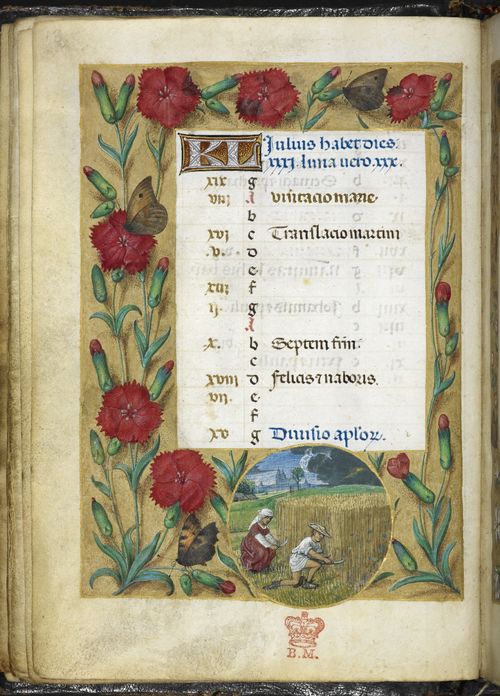 KL Julius habet dies
xxxi. luna vero. xxx.
xix g
viii A Visitacio marie.
b
xvi c Translacio martini
.v. d
e
xiii f
.ii. g
A
.x. b Septem frm.
c
xviii d felicis ⁊ naboris.
vii. e
f
xv g Divisio aplor.
B.M.